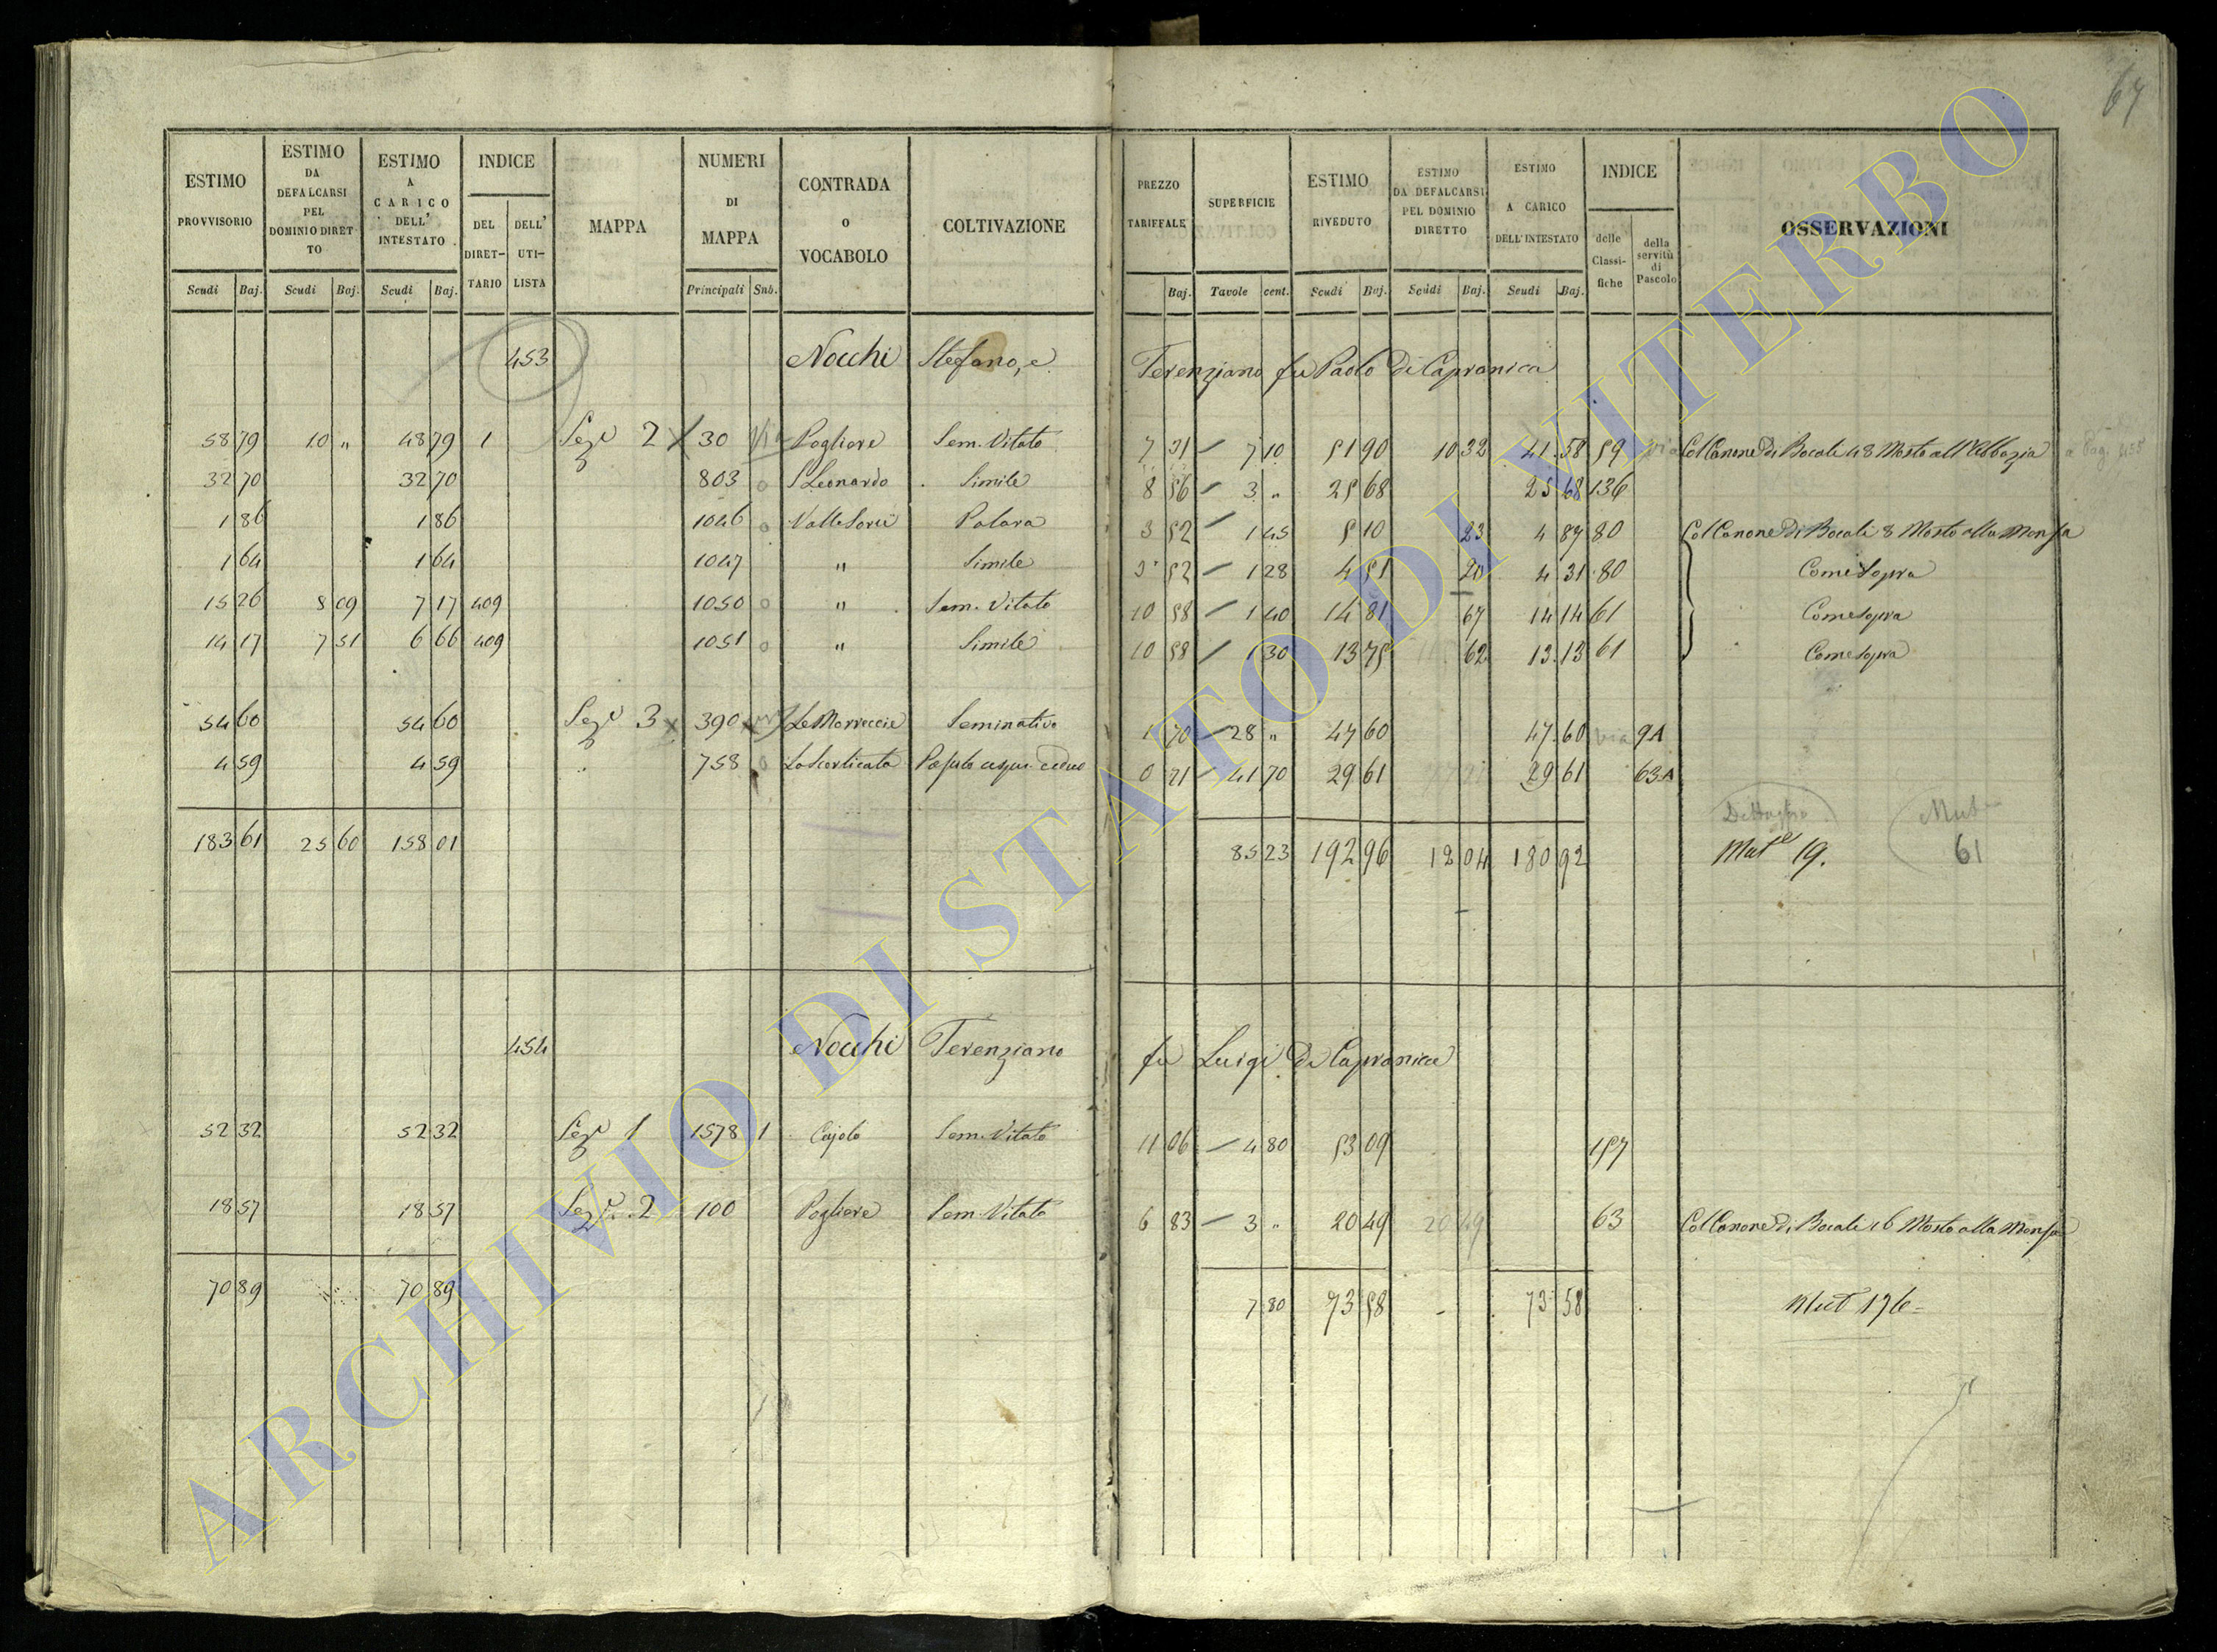 67
ESTIMO PROVVISORIO Scudi Baj. ESTIMO DA DEFALCARSI PEL DOMINIO DIRETTO Scudi Baj. ESTIMO A CARICO DELL' INTESTATO Scudi Baj. INDICE DEL DIRET-TARIO DELL' UTI-LISTA MAPPA NUMERI DI MAPPA Principali Sub. CONTRADA o VOCABOLO COLTIVAZIONE PREZZO TARIFFALE Baj. SUPERFICIE Tavole cent. ESTIMO RIVEDUTO Scudi Baj. ESTIMO DA DEFALCARSI PEL DOMINIO DIRETTO Scudi Baj. ESTIMO A CARICO DELL' INTESTATO Scudi Baj. INDICE delle Classi-fiche della servitù di Pascolo OSSERVAZIONI
453 Nocchi Stefano, e Terenziano fu Paolo di Capranica
58 79 10 " 48 79 1 Sez.e 2 30 Pogliere Sem. Vitato 7 31 7 10 51 90 10 32 41 58 59 Col Canone di Bocali 48 Mosto all'Abbazia
32 70 32 70 803 S Leonardo Simile 8 56 3 " 25 68 25 68 136
1 86 1 86 1046 Valle Sorci Polara 3 52 1 45 5 10 23 4 87 80 Col Canone di Bocali 8 Mosto alla Mensa
1 64 1 64 1047 " Simile 3 52 1 28 4 51 20 4 31 80 Come sopra
15 26 8 09 7 17 409 1050 " Sem. Vitato 10 58 1 40 14 81 67 14 14 61 Come sopra
14 17 7 51 6 66 409 1051 " Simile 10 58 1 30 13 75 62 13 13 61 Come sopra
54 60 54 60 Sez.e 3 390 Le Morreccie Seminativo 1 70 28 " 47 60 47 60 via 9A
4 59 4 59 758 La Scorticata Pascolo cespu. ceduo 0 71 41 70 29 61 29 61 63A
183 61 25 60 158 01 85 23 192 96 12 04 180 92 Mut.e 19. Mut 61
454 Nocchi Terenziano fu Luigi di Capranica
52 32 52 32 Sez.e 1 1578 1 Cajolo Sem. Vitato 11 06 4 80 53 09 157
18 57 18 57 Sez.e 2 100 Pogliere Sem. Vitato 6 83 3 " 20 49 20 49 63 Col Canone di Bocali 16 Mosto alla Mensa
70 89 70 89 7 80 73 58 - 73 58 Mut 176
ARCHIVIO DI STATO DI VITERBO